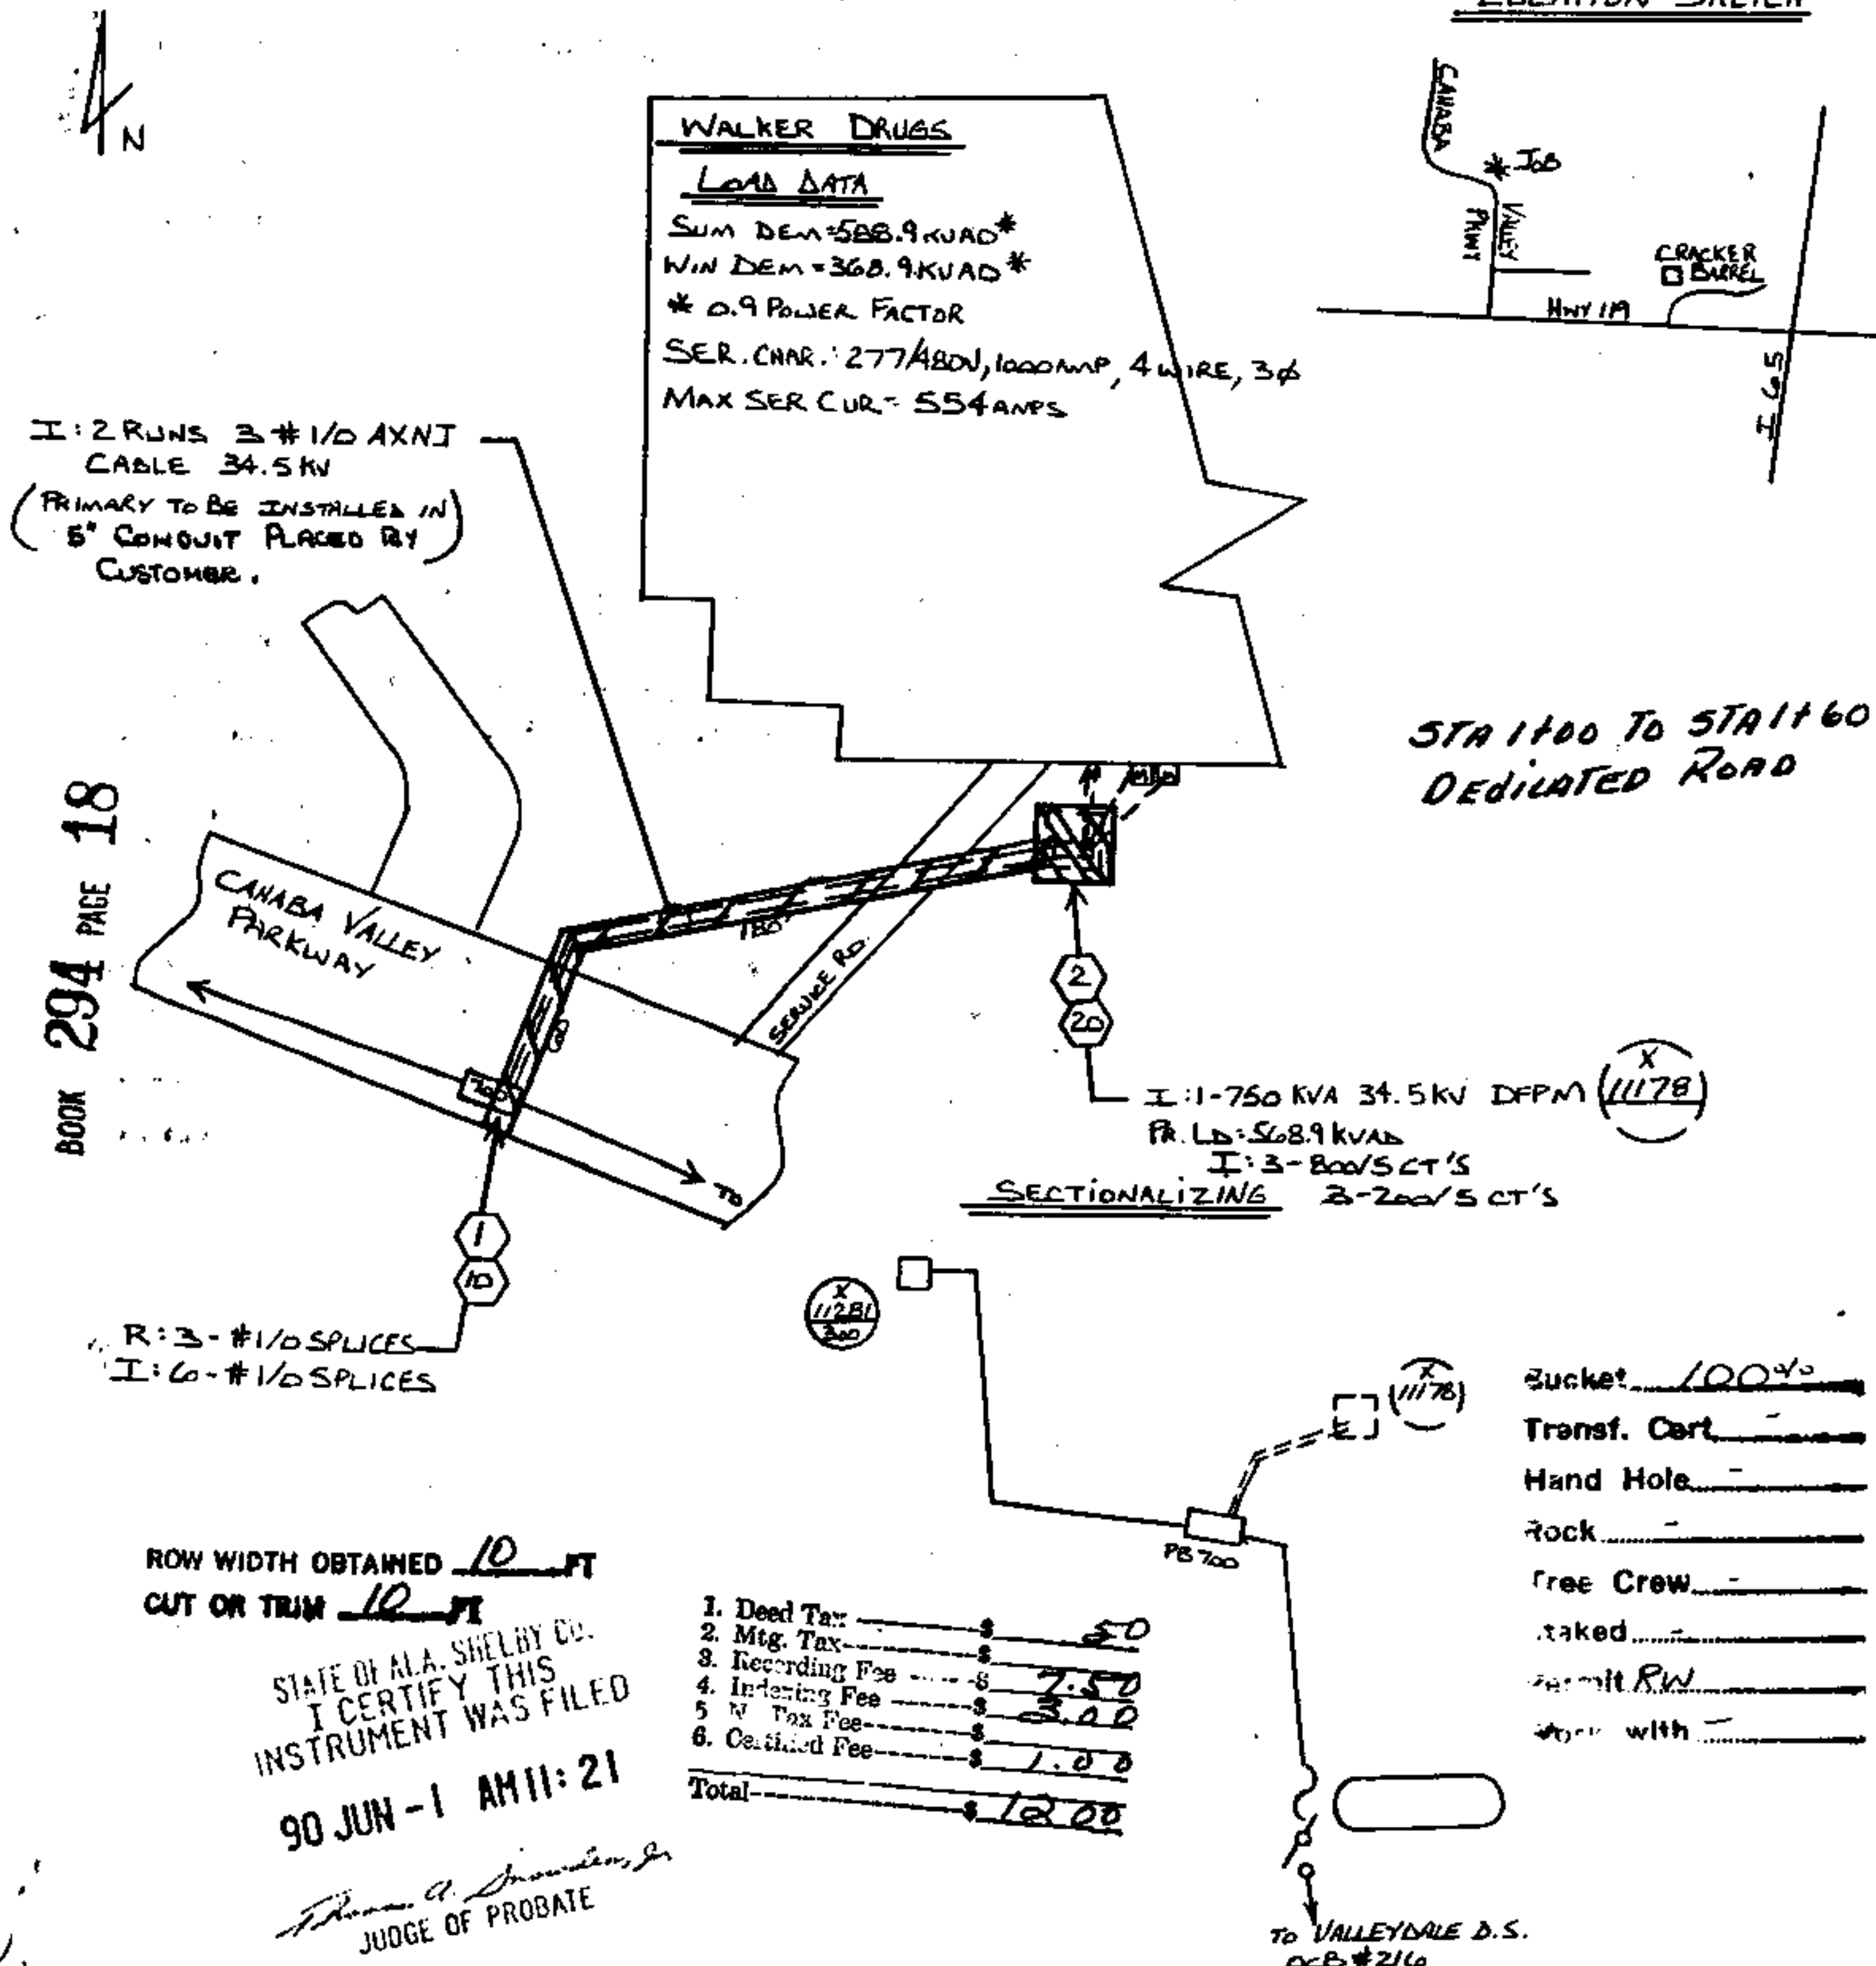 LOCATION SKETCH
N
CAHABA
VALLEY
PKWY
* JOB
CRACKER
BARREL
HWY 119
I 65
WALKER DRUGS
LOAD DATA
SUM DEM = 588.9 KVAD*
WIN DEM = 368.9 KVAD*
* 0.9 POWER FACTOR
SER. CHAR.: 277/480V, 1000AMP, 4 WIRE, 3φ
MAX SER CUR = 554 AMPS
I: 2 RUNS 3 #1/0 AXNJ
CABLE 34.5 KV
(PRIMARY TO BE INSTALLED IN
5" CONDUIT PLACED BY
CUSTOMER.)
STA 1+00 TO STA 1+60
DEDICATED ROAD
BOOK 294 PAGE 18
CAHABA VALLEY
PARKWAY
180'
SERVICE RD.
700
TO
M
M
2
20
I: 1-750 KVA 34.5KV DFPM
X
11178
PR. LD: 568.9 KVAD
I: 3-800/5 CT'S
3-200/5 CT'S
SECTIONALIZING
1
10
R: 3-#1/0 SPLICES
I: 6-#1/0 SPLICES
X
11281
300
X
11178
PB 700
Bucket 100%
Transf. Cert -
Hand Hole -
Rock -
Tree Crew -
Staked -
Permit RW
Work with -
ROW WIDTH OBTAINED 10 FT
CUT OR TRIM 10 FT
STATE OF ALA. SHELBY CO.
I CERTIFY THIS
INSTRUMENT WAS FILED
90 JUN -1 AM 11: 21
Thomas A. Snowden, Jr
JUDGE OF PROBATE
1. Deed Tax $ 50
2. Mtg. Tax $
3. Recording Fee $ 7.50
4. Indexing Fee $ 3.00
5 N Tax Fee $
6. Certified Fee $ 1.00
Total $ 12.00
TO VALLEYDALE D.S.
OCB #216